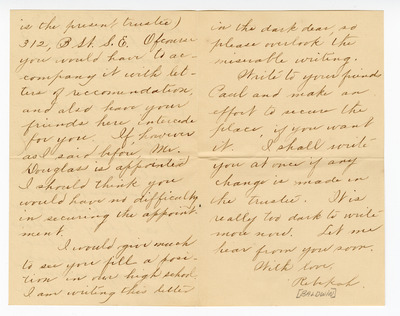 is the present trustee)
312, B. St. S. E. Ofcourse
you would have to ac-
company it with let-
ters of reccomendation,
and also have your
friends here intercede
for you. If, however
as I said before, Mr.
Douglas is appointed
I should think you
would have no difficulty
in securing the appoint-
ment.
I would give much
to see you fill a posi-
tion in our high school.
I am writing this letter
in the dark dear, so
please overlook the
miserable writing.
Write to your friends
Carl and make an
effort to secure the
place, if you want
it. I shall write
you at once if any
change is made in
the trustee. It is
really too dark to write
more now. Let me
hear from you soon.
With love,
Rebekah.
[BALDWIN]